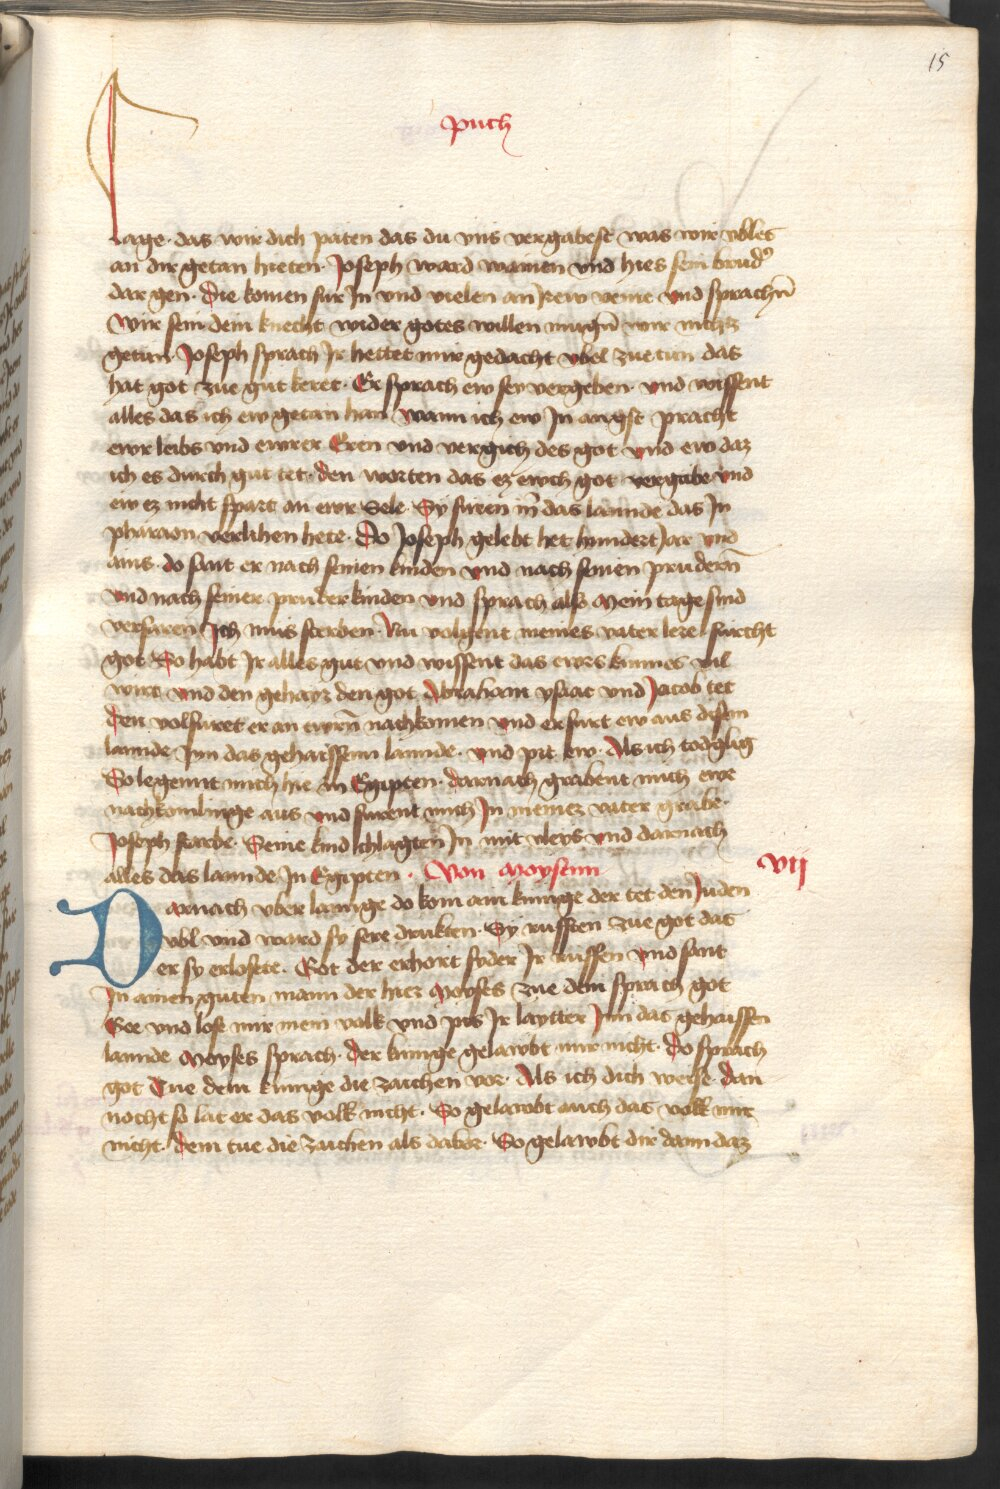 15
puch
Lage · das wir dich paten das du vns vergabest was wir vbles
an dir getan hieten · Joseph ward wainen vnd hies sein brud᾽
dar gen · Die komen fur Jn vnd vielen an Jrew venie vnd sprachn̄
Wir sein dein knecht wider gotes willen mugn̄ wir nichtz
getun · Joseph sprach Jr hettet mir gedacht vbel zuetun das
hat got zue gut keret · Er sprach ew sey vergeben · vnd wissent
alles das ich ew getan han Wann ich ew Jn angst pracht
ewr leibs vnd ewrer Eren vnd vergich des got vnd ew daz
ich es durch gut tet · den worten das ez ewch got vergabe vnd
ew ez nicht spart an ewr Sele · Sy furen in̄ das lannde das Jn
pharaon verlihen hete · Do Joseph gelebt het hundert Jar vnd
ains · do sant er nach seinen kinden vnd nach seinen prudern̄
vnd nach seiner pruder kinden vnd sprach also Mein tage sind
verfaren Jch mus sterben · Nu volgent meines vater lere furcht
got So habt Jr alles gut vnd wissent das ewrs kunnes vil
wirt vnd den gehayz den got Abraham ysaac vnd Jacob tet
Den volfuret er an ewrn̄ nachkomen vnd er furt ew aus desem
lannde Jnn das gehaissenn lannde · vnd pit ew · Als ich tod glig
So legennt mich hie in Egipten · darnach grabent mich ewr
nachkomlinge aus vnd furent mich Jn meinez vater grabe ·
Joseph starbe · Seine kind chlagten Jn mit vleys vnd darnach
alles das lannde Jn Egipten · Von Moysenn vij
Darnach vber lannge do kom ain kunige der tet den Juden
vbl vnd ward sy sere drukten · Sy rufften zue got das
er sy erlosete · Got der erhort syder Jr ruffen vnd sant
Jn ainen guten mann der hiez Moyses zue dem sprach got
Gee vnd lose mir mein volk vnd pis Jr laytter Jnn das gehaissen
lannde Moyses sprach · der kunige gelawbt mir nicht · Do sprach
got Tue dem kunige die zaichen vor · Als ich dich weise · dan
nocht so lat er das volk nicht · So gelawbt auch das volk mir
nicht · dem tue die zaichen als dabor · So gelawbt dir dann daz